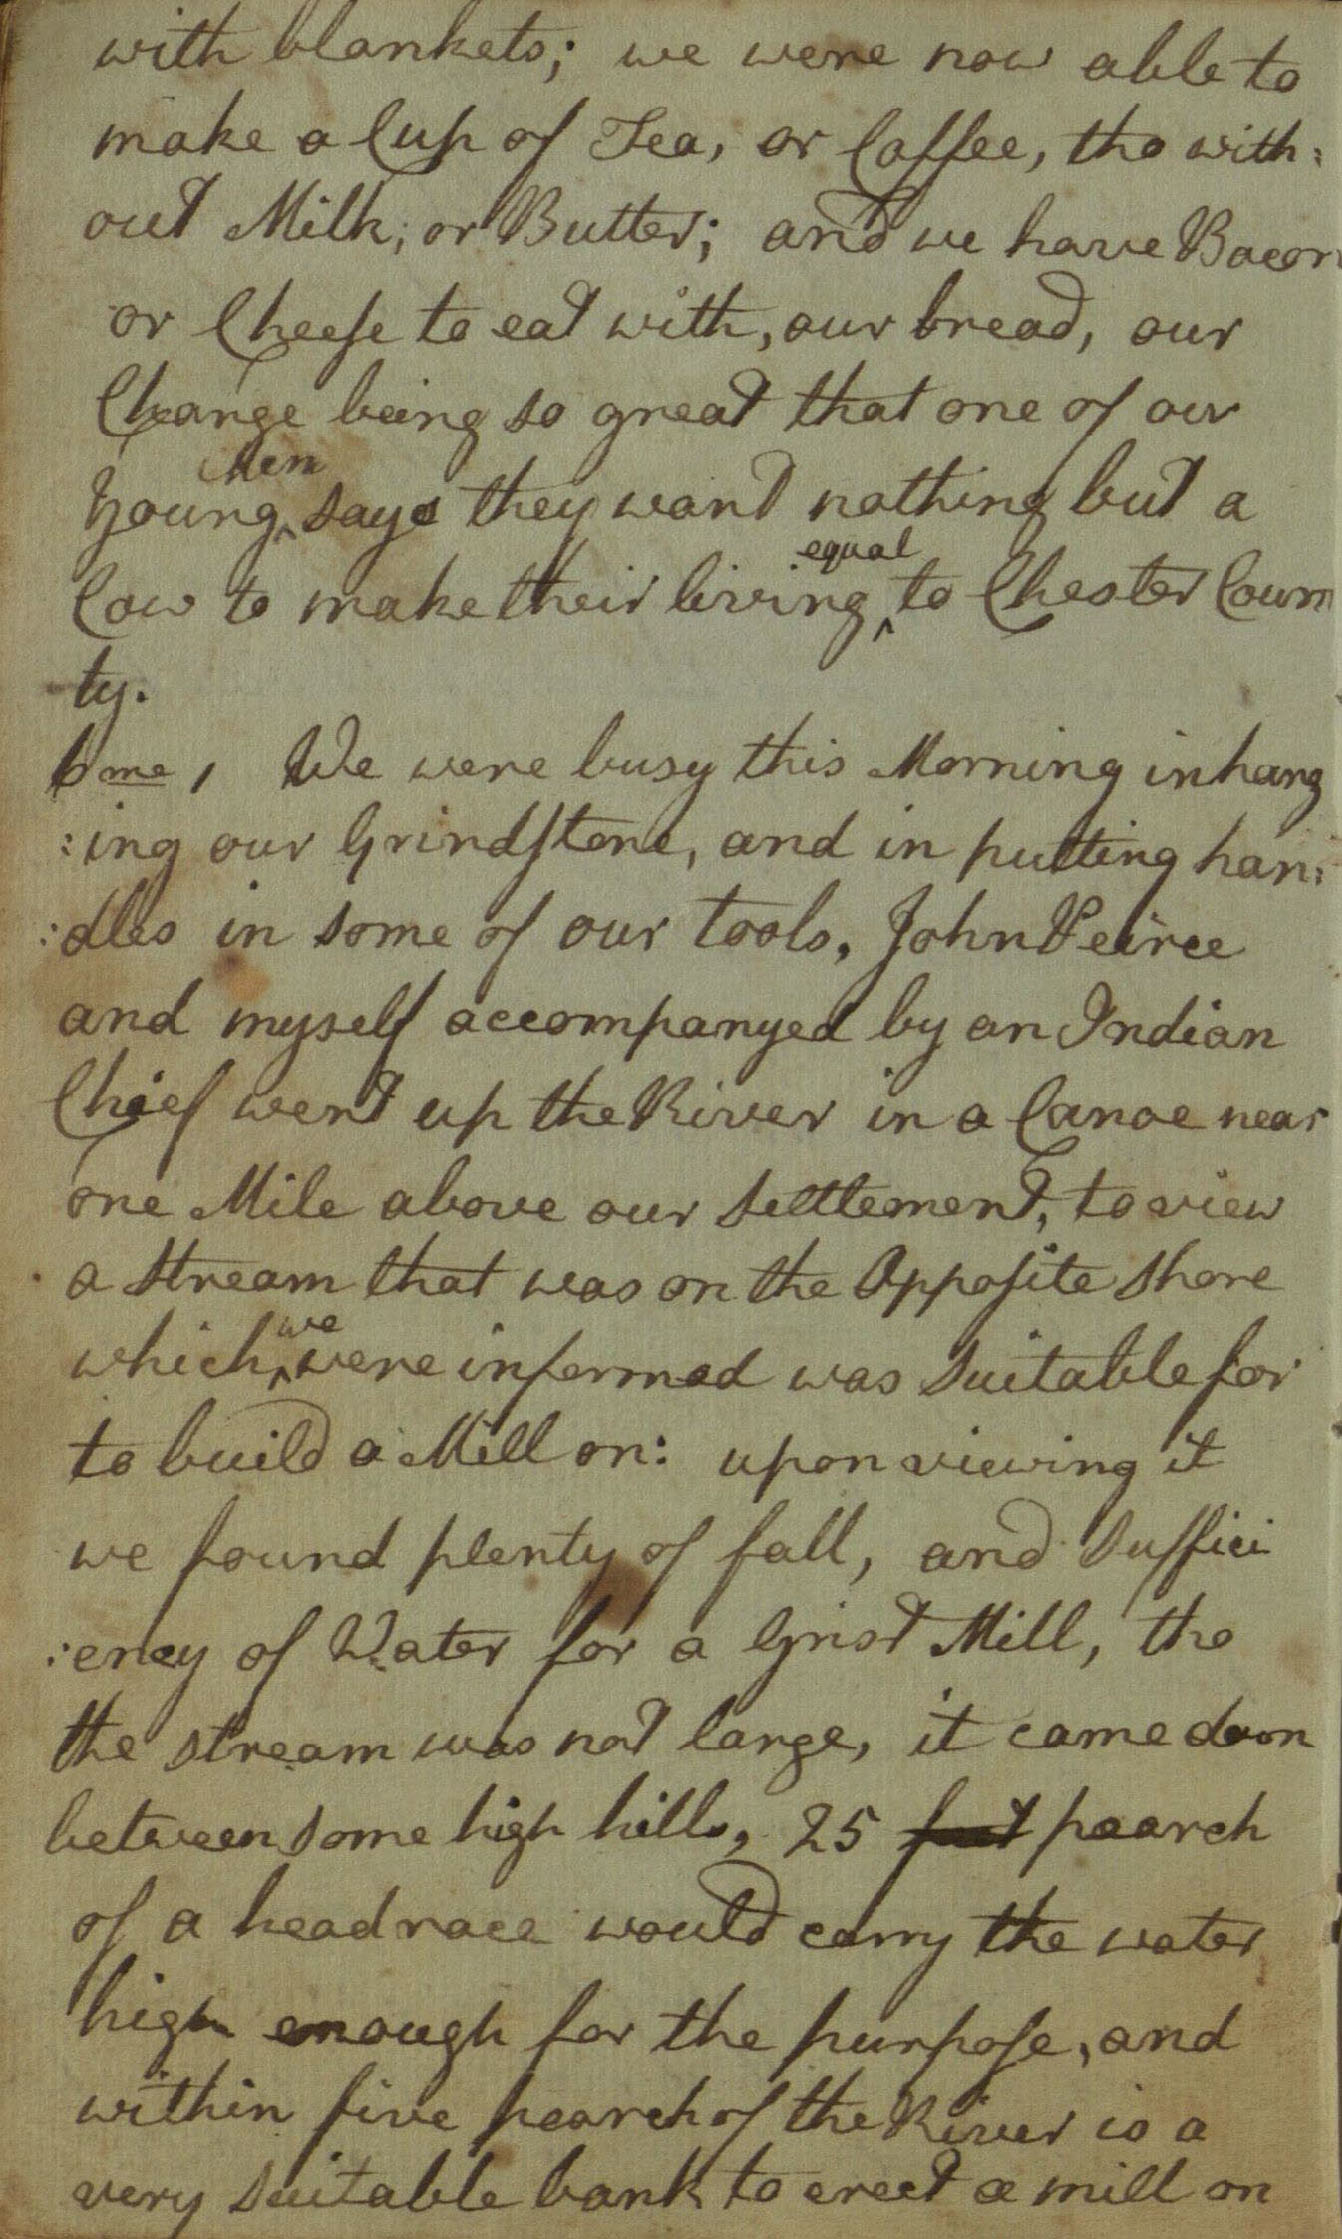 with blankets; we were now able to
make a Cup of Tea, or Coffee, tho with:
out Milk, or Butter; and we have Bacon
or Cheese to eat with, our bread, our
Change being so great that one of our
Young ^Men says they want nothing but a
Cow to make their living ^equal to Chester Coun
ty.
6 mo, We were busy this Morning in hang
:ing our Grindstone, and in putting han:
:dles in some of our tools, John Peirce
and myself accompanyed by an Indian
Chief went up the River in a Canoe near
one Mile above our Settlement, to view
a Stream that was on the Opposite Shore
which ^we were informed was Suitable for
to build a Mill on: upon viewing it
we found plenty of fall, and Suffici
:ency of Water for a Grist Mill, tho
the stream was not large, it came down
between some high hills, 25 feet pearch
of a headrace would carry the water
high enough for the purpose, and
within five pearch of the River is a
very Suitable bank to erect a mill on